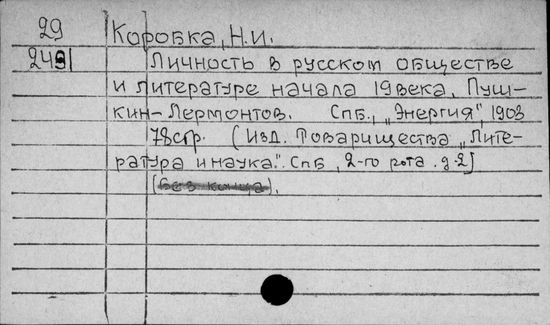 29 Коробка, Н.И.
249 Личность в русском обществе
и литературе начала 19 века. Пуш-
кин-Лермонтов. Спб., „Энергия", 1903
78стр. (Изд. Товарищества „Лите-
ратура и наука". Спб, 2-го рота. д-2)
(без конца).